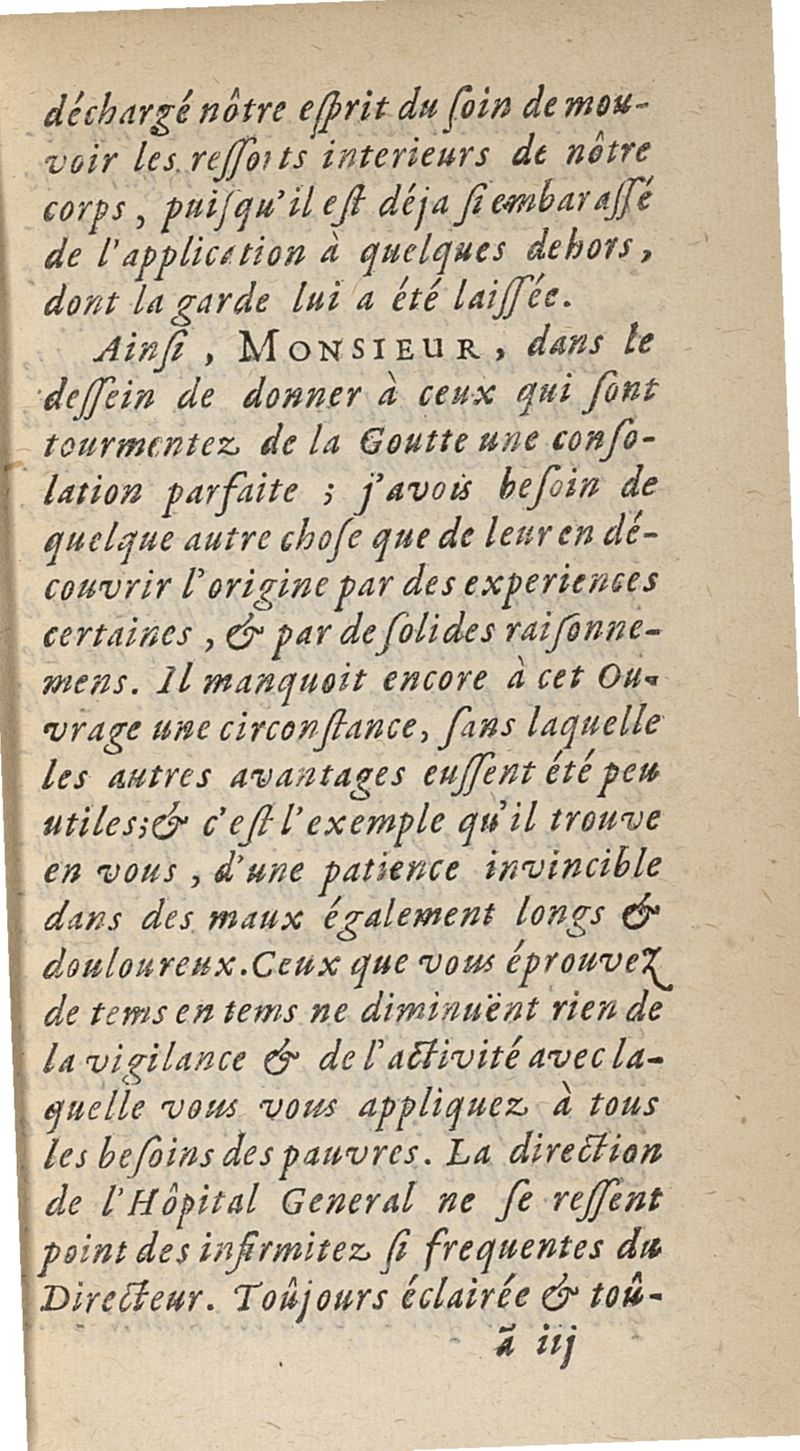 déchargé nôtre eſprit du ſoin de mou-
voir les reſſorts interieurs de nôtre
corps, puiſqu'il eſt déja ſi embaraſſé
de l'application à quelques dehors,
dont la garde lui a été laiſſée.
Ainſi, MONSIEUR, dans le
deſſein de donner à ceux qui ſont
tourmentez de la Goutte une conſo-
lation parfaite ; j'avois beſoin de
quelque autre choſe que de leur en dé-
couvrir l'origine par des experiences
certaines, & par de ſolides raiſonne-
mens. Il manquoit encore à cet Ou-
vrage une circonſtance, ſans laquelle
les autres avantages euſſent été peu
utiles;& c'eſt l'exemple qu'il trouve
en vous, d'une patience invincible
dans des maux également longs &
douloureux. Ceux que vous éprouvez
de tems en tems ne diminuënt rien de
la vigilance & de l'activité avec la-
quelle vous vous appliquez à tous
les beſoins des pauvres. La direction
de l'Hôpital General ne ſe reſſent
point des infirmitez ſi frequentes du
Directeur. Toûjours éclairée & toû-
ã iij